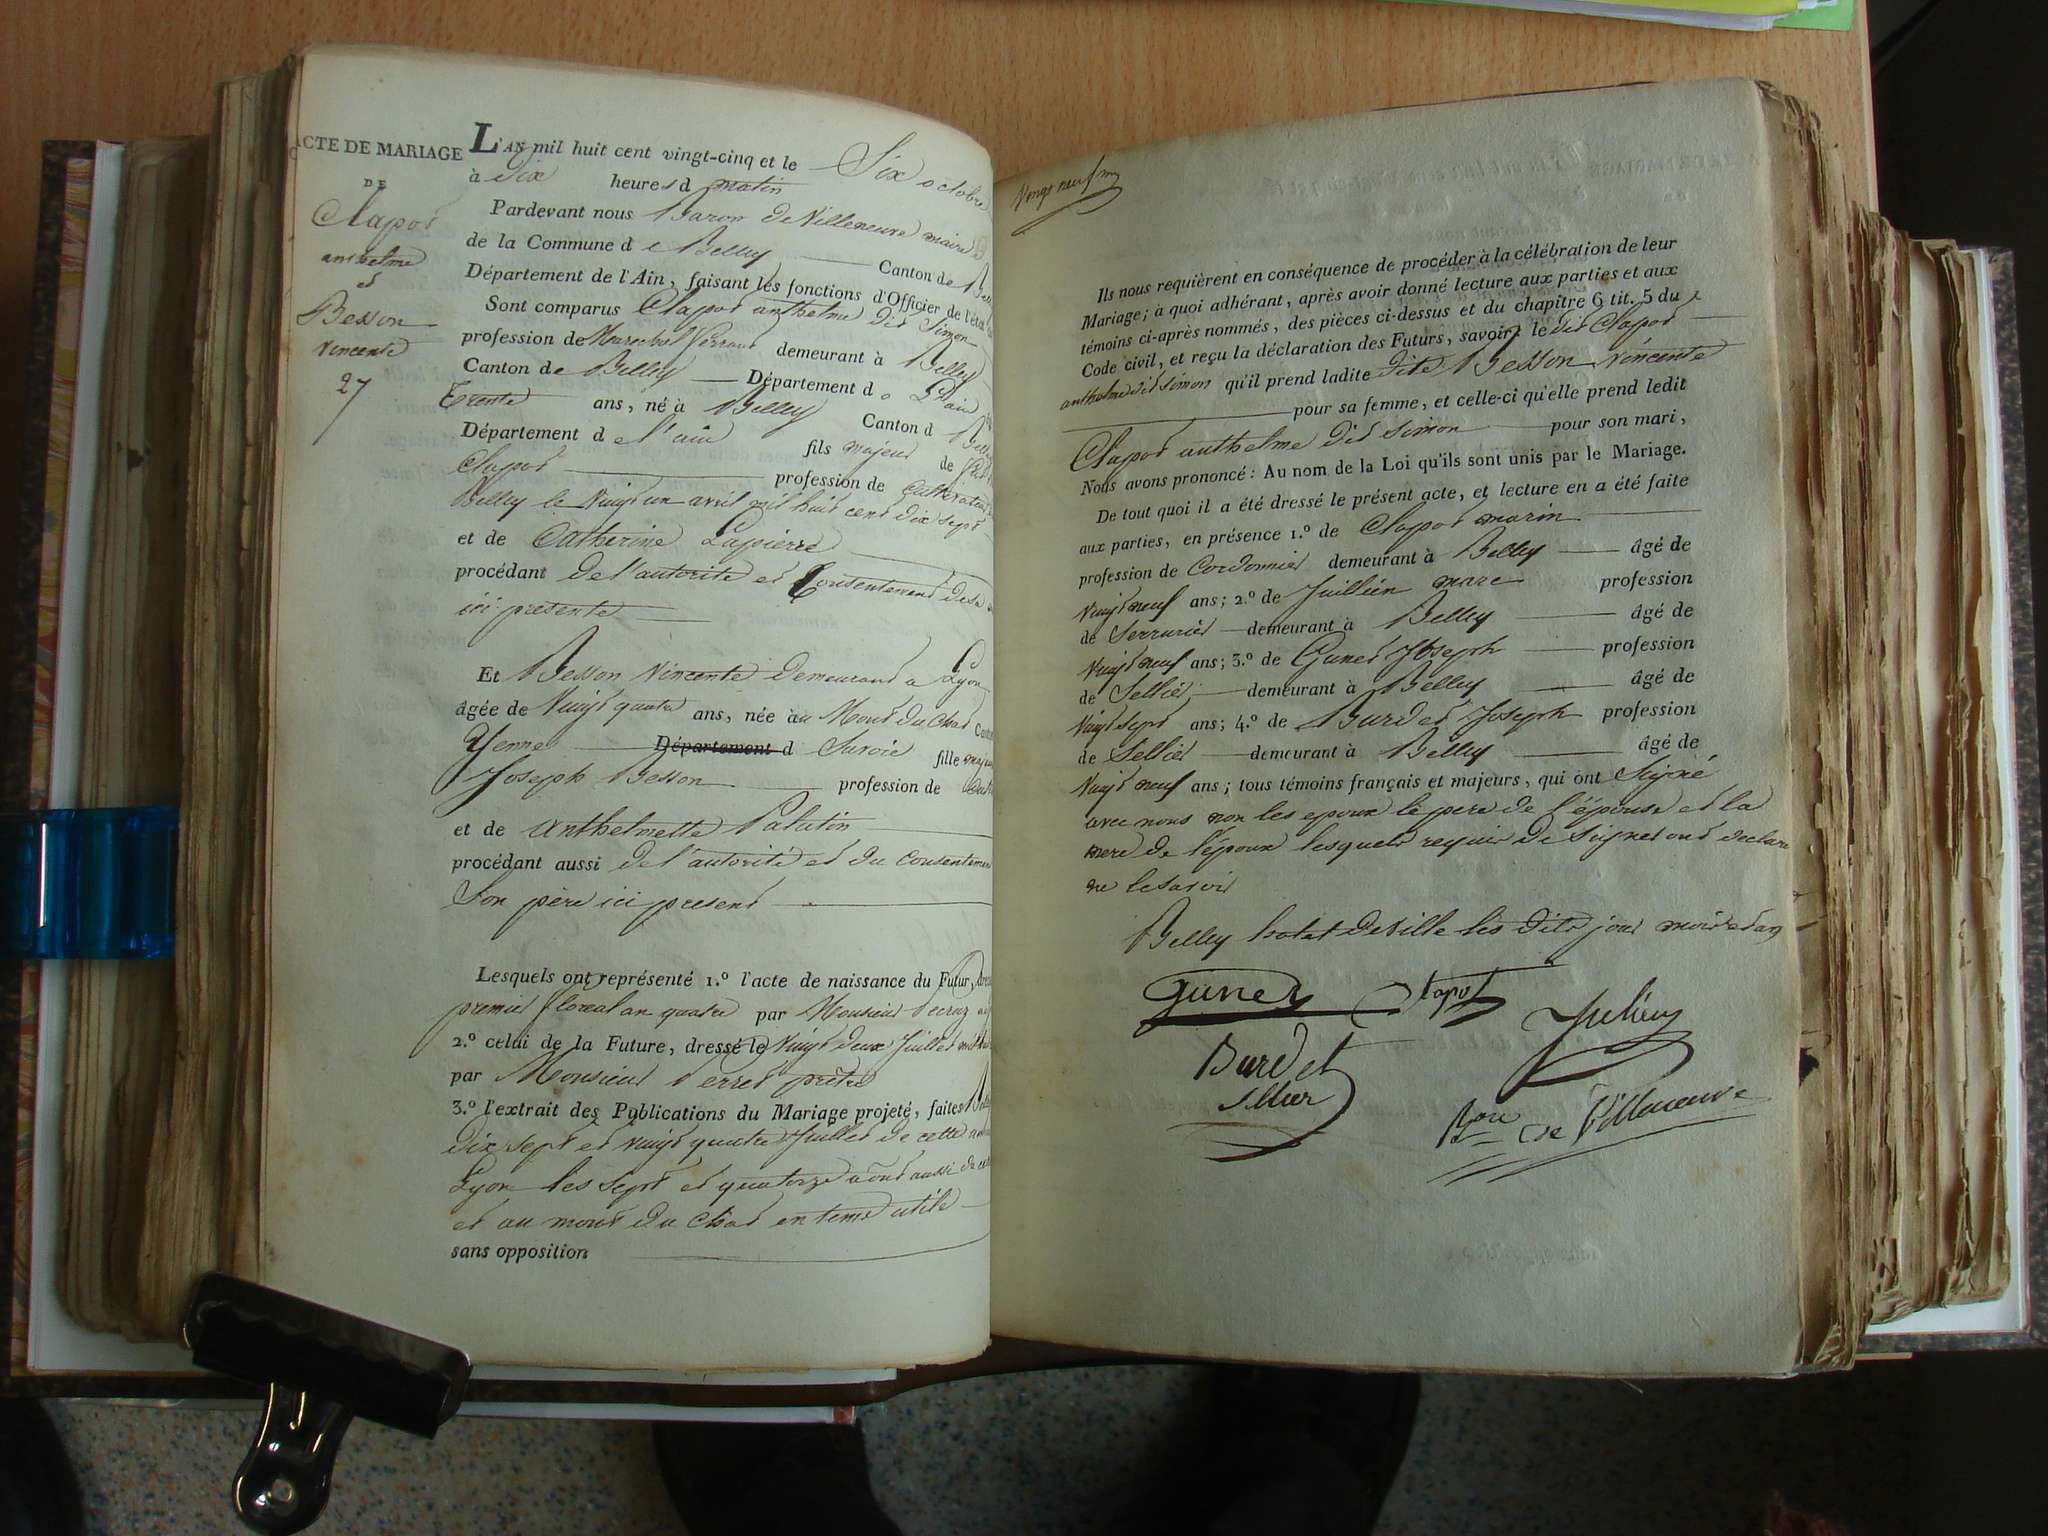 ACTE DE MARIAGE
DE
Clapot
anthelme
et
Besson
Vincente
27
L'AN mil huit cent vingt-cinq et le Six octobre
à dix heures d matin
Pardevant nous Baron de Villeneuve maire
de la Commune d e Belley Canton de
Département de l'Ain, faisant les fonctions d'Officier de l'état
Sont comparus Clapot anthelme dit Simon
profession de Marechal ferrant demeurant à Belley
Canton de Belley Département d L'ain
Trente ans, né à Belley Canton d
Département d e l'ain fils majeur de
Clapot profession de Cultivateur
Belley le Vingt un avril mil huit cent dix sept
et de Catherine Lapierre
procédant de l'autorité et Consentement de sa
ici presente
Et Besson Vincente demeurant a Lyon
âgée de Vingt quatre ans, née au Mont du Chat
Yenne Département d Savoie fille
Joseph Besson profession de
et de Anthelmette Palatin
procédant aussi de l'autorité et du Consentement
Son père ici present
Lesquels ont représenté 1.º l'acte de naissance du Futur,
premier floreal an quatre par Monsieur
2.º celui de la Future, dressé le Vingt deux Juillet
par Monsieur Perret prêtre
3.º l'extrait des Publications du Mariage projeté, faites
dix sept et vingt quatre Juillet de cette
Lyon les sept et quatorze août aussi de
et au mont du Chat en tems utile
sans opposition
Vingt neuf
Ils nous requièrent en conséquence de procéder à la célébration de leur
Mariage; à quoi adhérant, après avoir donné lecture aux parties et aux
témoins ci-après nommés, des pièces ci-dessus et du chapitre 6 tit. 5 du
Code civil, et reçu la déclaration des Futurs, savoir, le dit Clapot
anthelme dit simon qu'il prend ladite dite Besson Vincente
pour sa femme, et celle-ci qu'elle prend ledit
Clapot anthelme dit simon pour son mari,
Nous avons prononcé: Au nom de la Loi qu'ils sont unis par le Mariage.
De tout quoi il a été dressé le présent acte, et lecture en a été faite
aux parties, en présence 1.º de Clapot marin
profession de Cordonnier demeurant à Belley âgé de
Vingt neuf ans; 2.º de Juillien marc profession
de Serrurier demeurant à Belley âgé de
Vingt neuf ans; 3.º de Gunet Joseph profession
de Sellier demeurant à Belley âgé de
Vingt sept ans; 4.º de Burdet Joseph profession
de Sellier demeurant à Belley âgé de
Vingt neuf ans; tous témoins français et majeurs, qui ont Signé
avec nous non les epoux le pere de l'épouse et la
mere de l'époux lesquels requis de Signer ont declaré
ne le savoir
Belley hotel de Ville les dits jour mois et an
Gunet Clapot
Julien
Burdet
sellier
Bon de Villeneuve